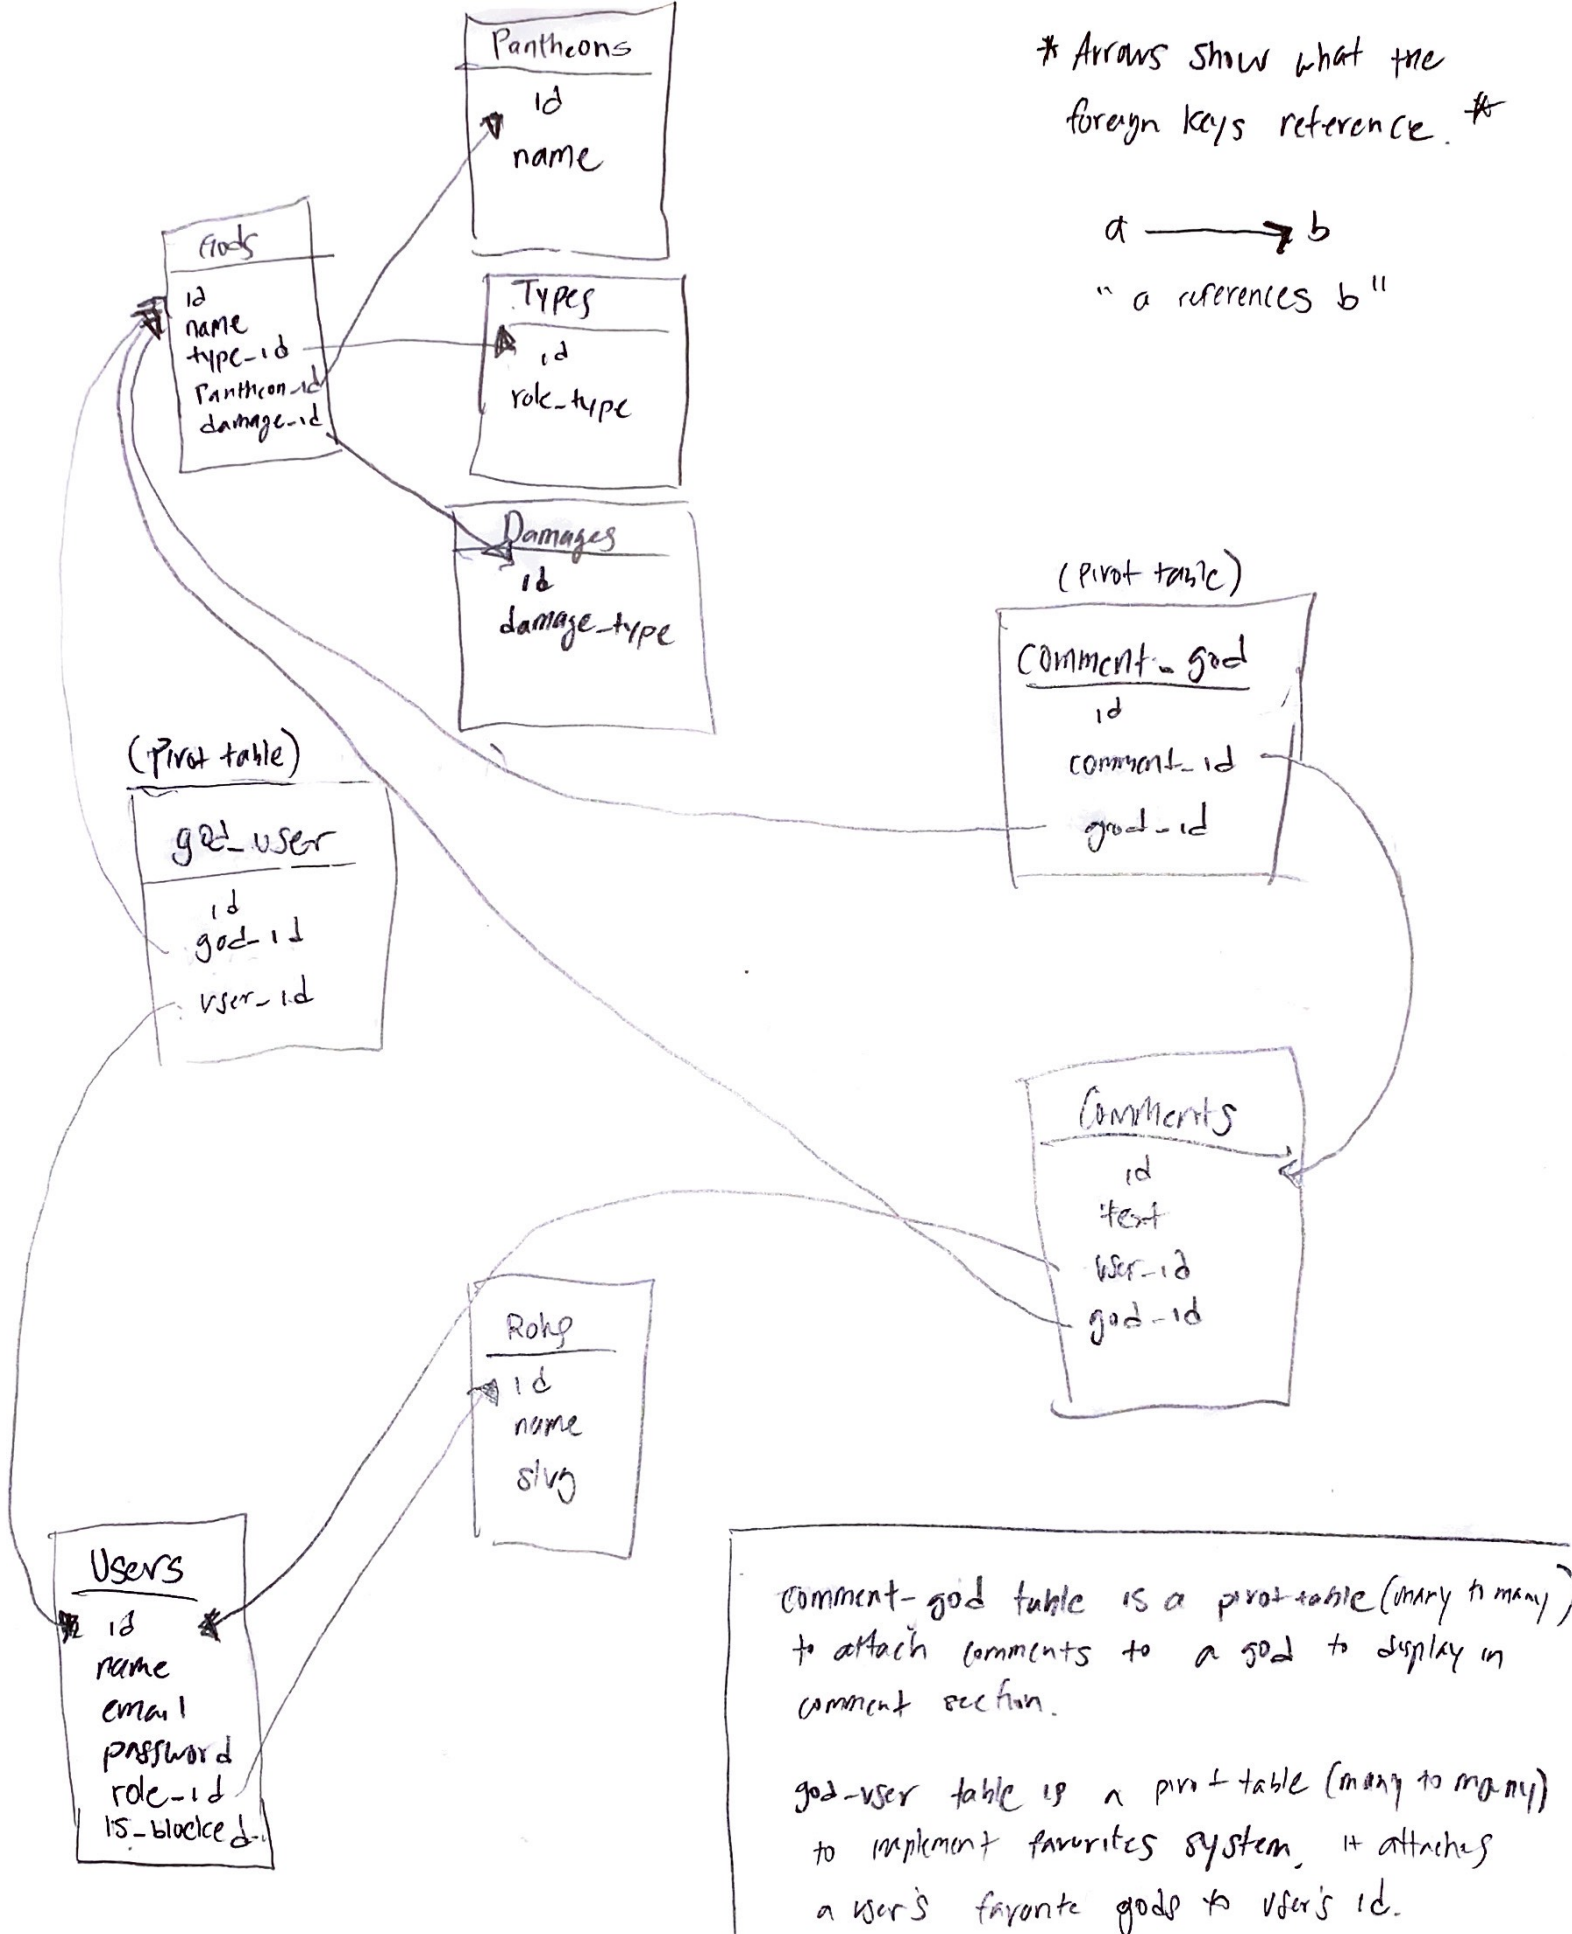 Pantheons
id
name
* Arrows show what the
foreign keys reference. *
a → b
"a references b"
Gods
id
name
type_id
Pantheon_id
damage_id
Types
id
role_type
Damages
id
damage_type
(pivot table)
comment_god
id
comment_id
god_id
(Pivot table)
god_user
id
god_id
user_id
Comments
id
text
user_id
god_id
Roles
id
name
slug
Users
id
name
email
password
role_id
is_blocked
comment-god table is a pivot table (many to many)
to attach comments to a god to display in
comment section.
god-user table is a pivot table (many to many)
to implement favorites system, it attaches
a user's favorite gods to user's id.